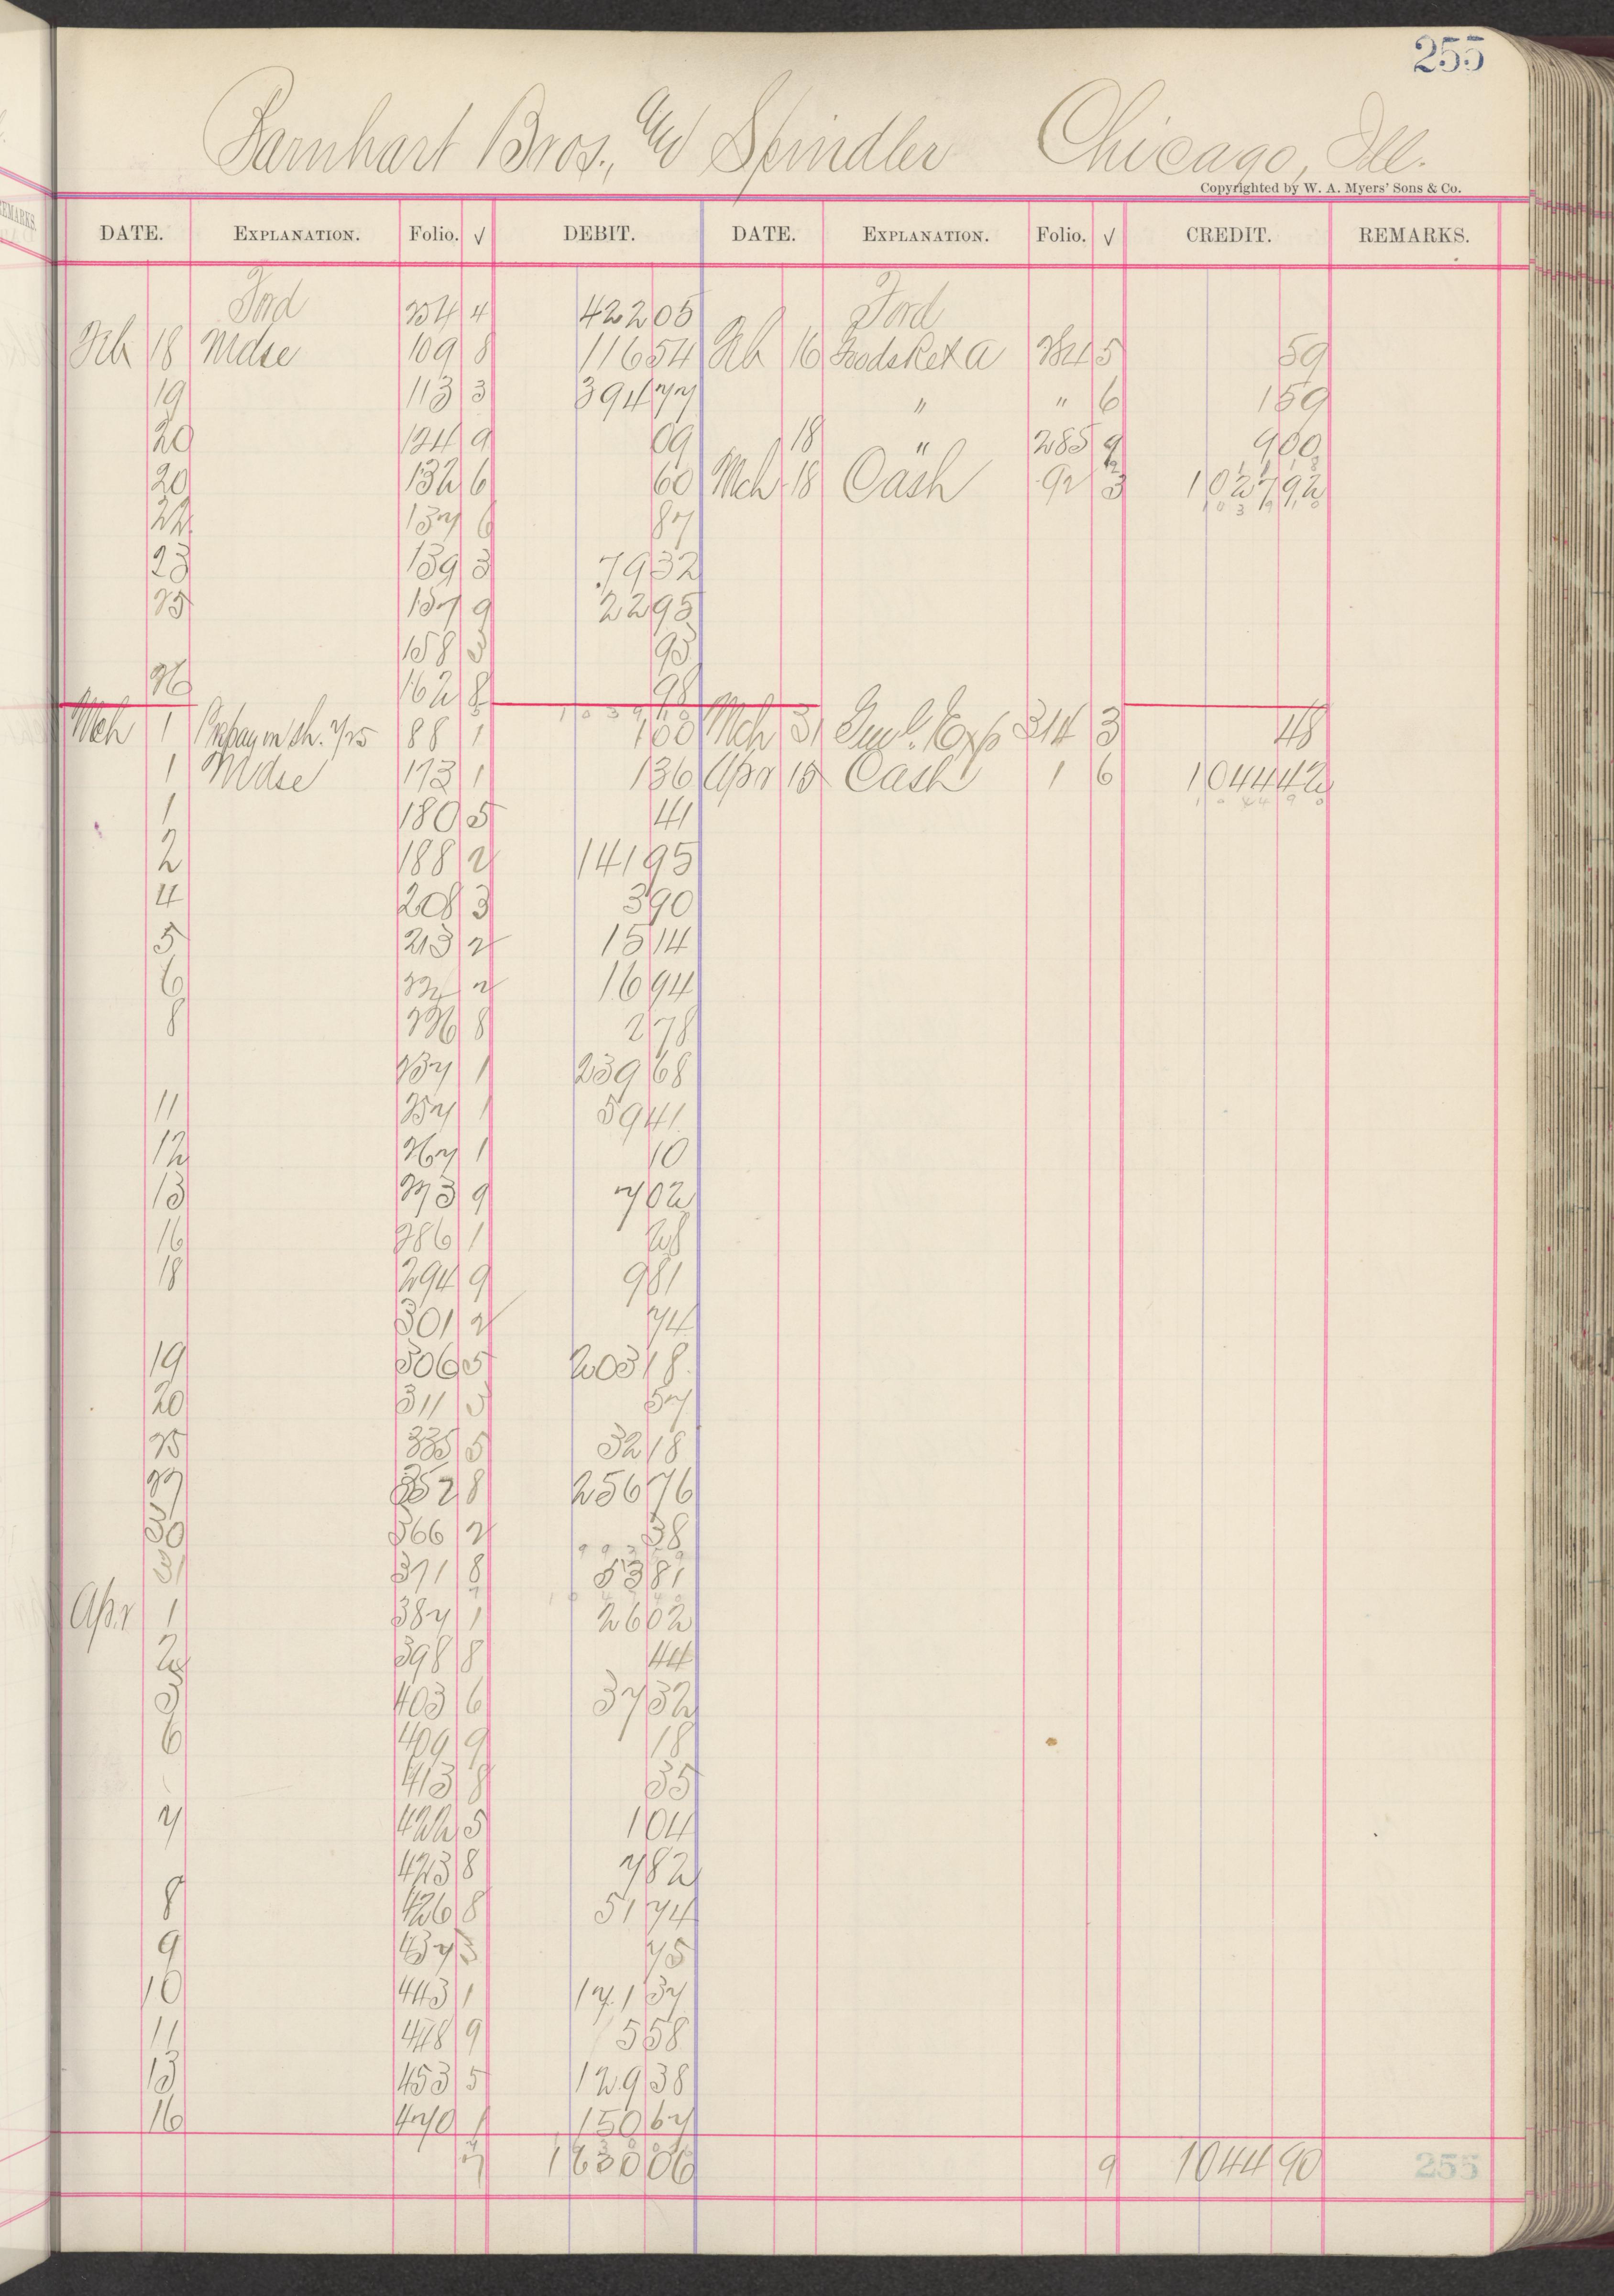 255
Barnhart Bros., & Spindler Chicago, Ill.
Copyrighted by W. A. Myers' Sons & Co.
DATE. EXPLANATION. Folio. √ DEBIT. DATE. EXPLANATION. Folio. √ CREDIT. REMARKS.
Ford 4 422 05 Ford
Feb 18 Mdse 109 8 116 54 Feb 16 5 59
19 113 3 394 77 " " 6 1 59
20 124 9 09 18 " 285 9 9 00
20 132 6 60 Mch 18 Cash 92 3 1027 92
22 137 6 87
23 139 3 79 32
25 157 9 22 95
158 3 95
26 162 8 98
Mch 1 188 1 1 00 Mch 31 Genl. Exp 214 3 48
1 Mdse 173 1 1 36 Apr 15 Cash 1 6 1044 42
1 180 5 41
2 188 2 141 95
4 208 3 3 90
5 213 2 15 14
6 2 16 94
8 236 8 2 78
237 1 239 68
11 257 1 59 41
12 267 1 10
13 273 9 7 02
16 286 1
18 294 9 9 81
301 2 74
19 306 5 203 18
20 311 5 57
25 335 5 32 18
27 352 8 256 76
30 366 2 38
31 371 8 53 81
Apr 1 387 1 26 02
2 398 8 44
3 403 6 37 52
6 409 9 18
413 8 35
7 422 5 1 04
423 8 7 82
8 426 8 51 74
9 437 3 75
10 443 1 171 57
11 448 9 5 58
13 453 5 129 38
16 470 1 150 67
9 1044 90 255